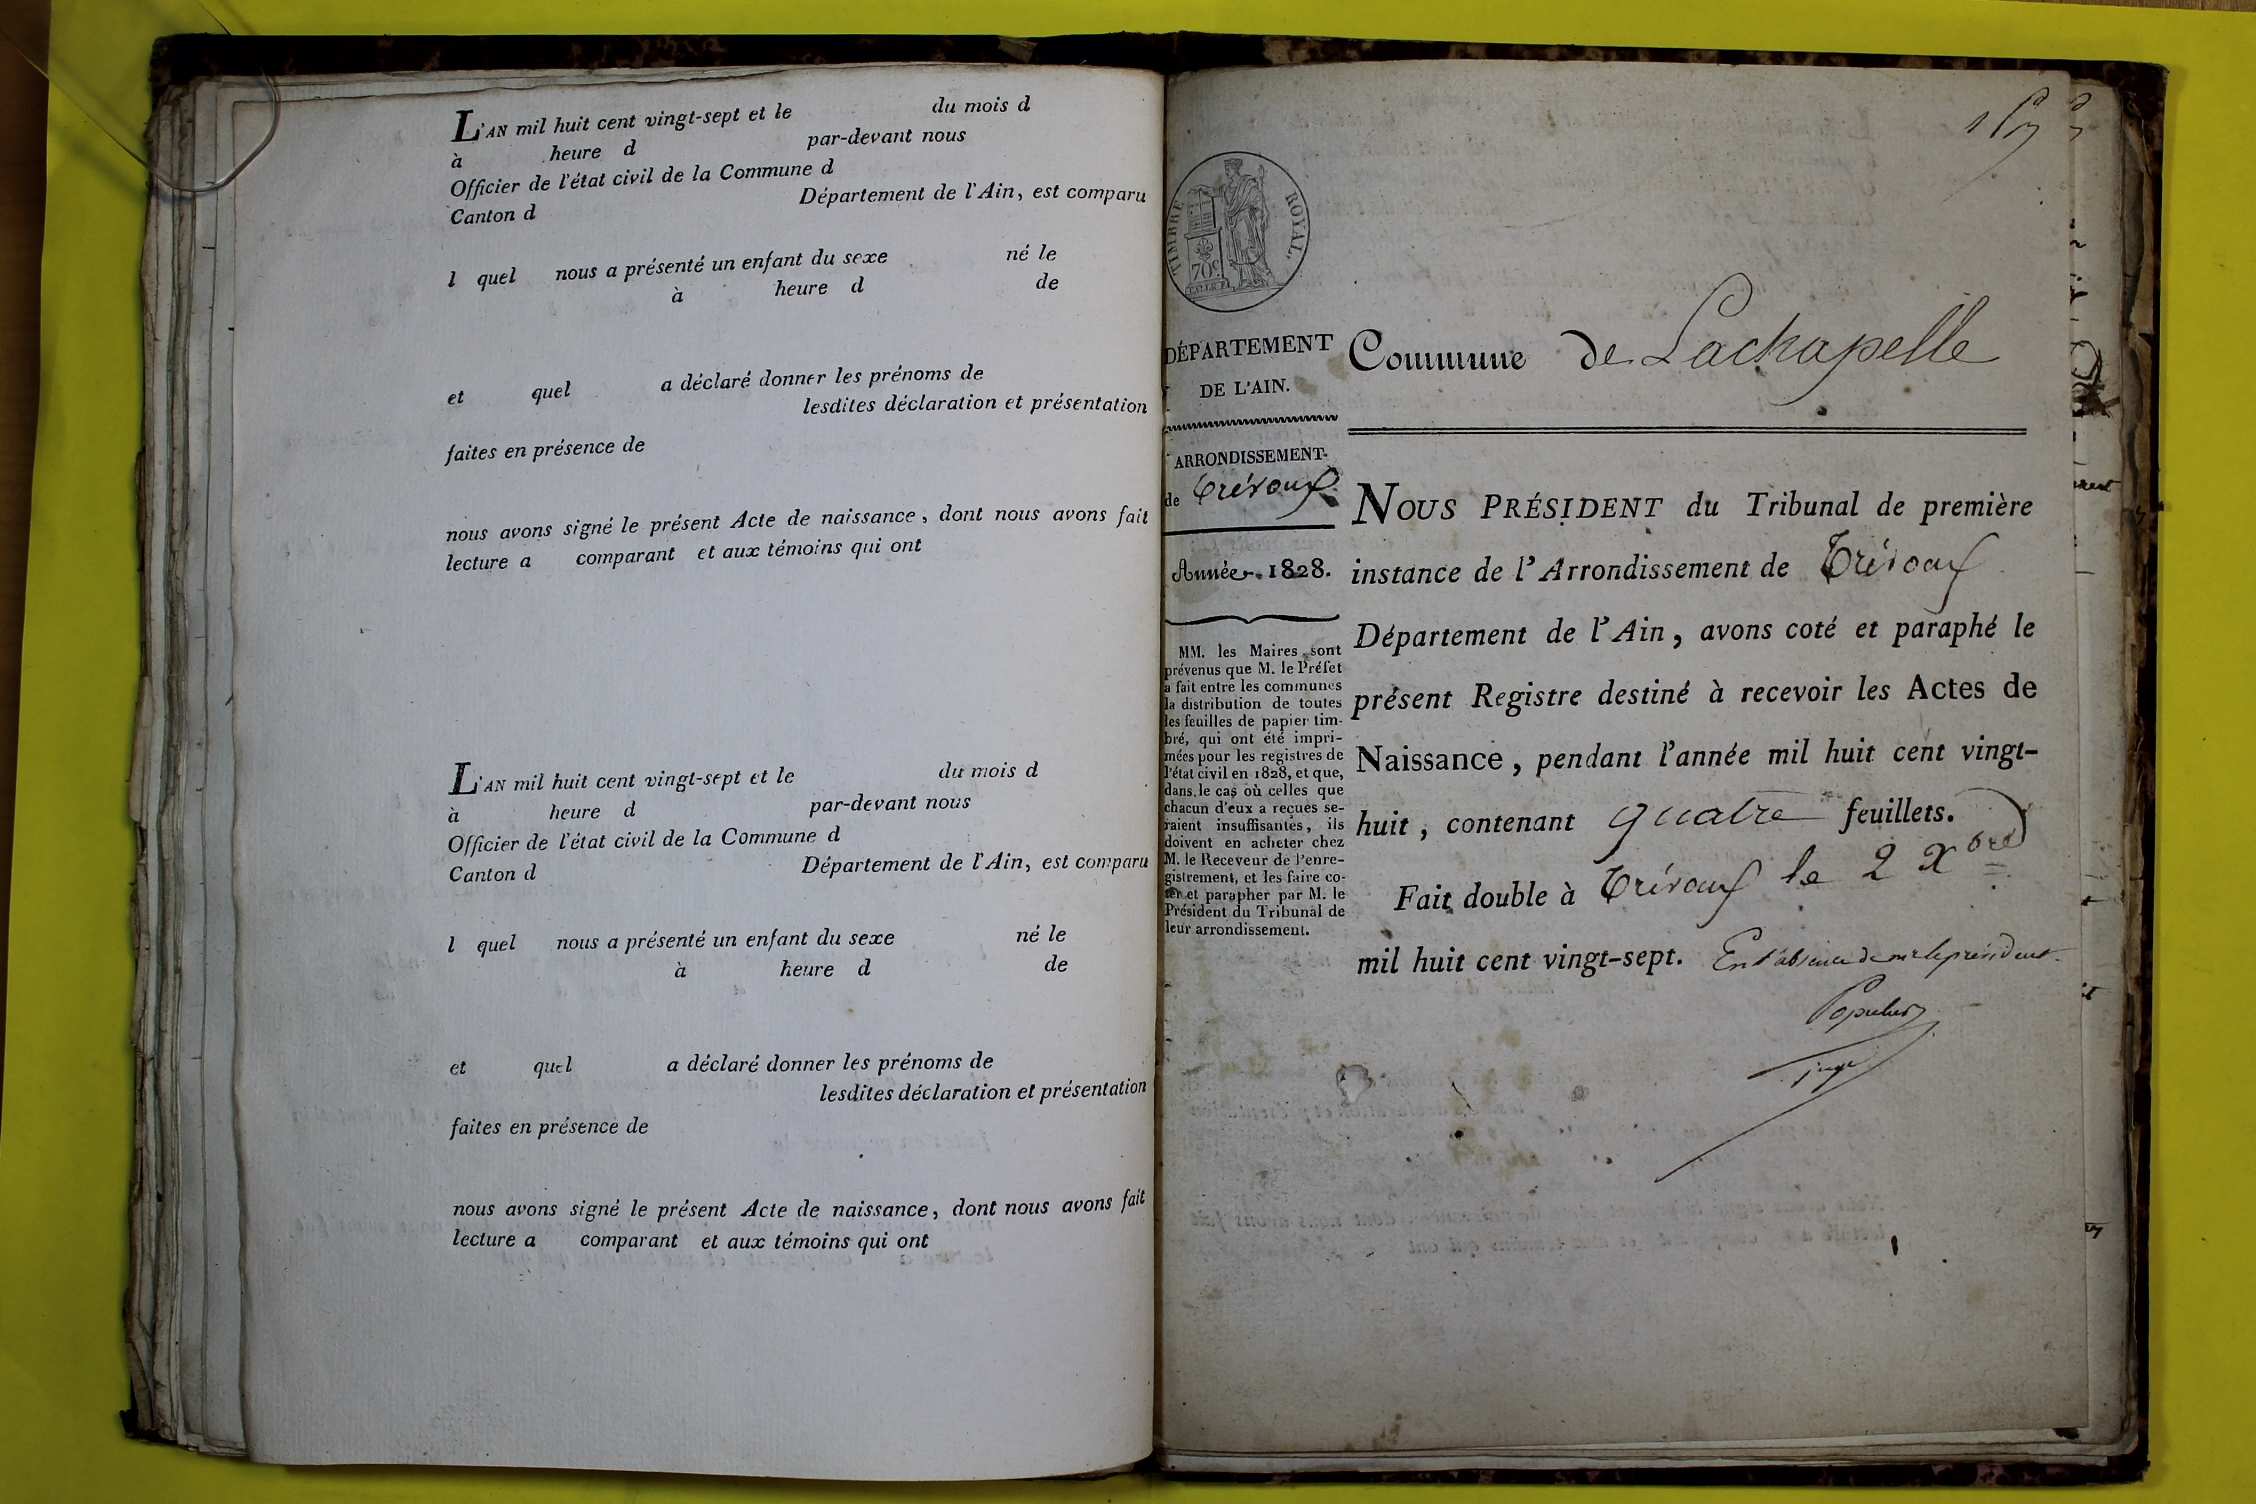 L'AN mil huit cent vingt-sept et le du mois d
à heure d par-devant nous
Officier de l'état civil de la Commune d
Canton d Département de l'Ain, est comparu
l quel nous a présenté un enfant du sexe né le
à heure d de
et quel a déclaré donner les prénoms de
lesdites déclaration et présentation
faites en présence de
nous avons signé le présent Acte de naissance, dont nous avons fait
lecture a comparant et aux témoins qui ont
L'AN mil huit cent vingt-sept et le du mois d
à heure d par-devant nous
Officier de l'état civil de la Commune d
Canton d Département de l'Ain, est comparu
l quel nous a présenté un enfant du sexe né le
à heure d de
et quel a déclaré donner les prénoms de
lesdites déclaration et présentation
faites en présence de
nous avons signé le présent Acte de naissance, dont nous avons fait
lecture a comparant et aux témoins qui ont
1
TIMBRE ROYAL.
70c
DÉPARTEMENT
DE L'AIN.
ARRONDISSEMENT
de Trévoux
Année 1828.
MM. les Maires sont
prévenus que M. le Préfet
a fait entre les communes
la distribution de toutes
les feuilles de papier tim-
bré, qui ont été impri-
mées pour les registres de
l'état civil en 1828, et que,
dans le cas où celles que
chacun d'eux a reçues se-
raient insuffisantes, ils
doivent en acheter chez
M. le Receveur de l'enre-
gistrement, et les faire co-
ter et parapher par M. le
Président du Tribunal de
leur arrondissement.
Commune de Lachapelle
NOUS PRÉSIDENT du Tribunal de première
instance de l'Arrondissement de Trévoux
Département de l'Ain, avons coté et paraphé le
présent Registre destiné à recevoir les Actes de
Naissance, pendant l'année mil huit cent vingt-
huit, contenant quatre feuillets.
Fait double à Trévoux le 2 Xbre
mil huit cent vingt-sept. En l'absence de mr le président
juge